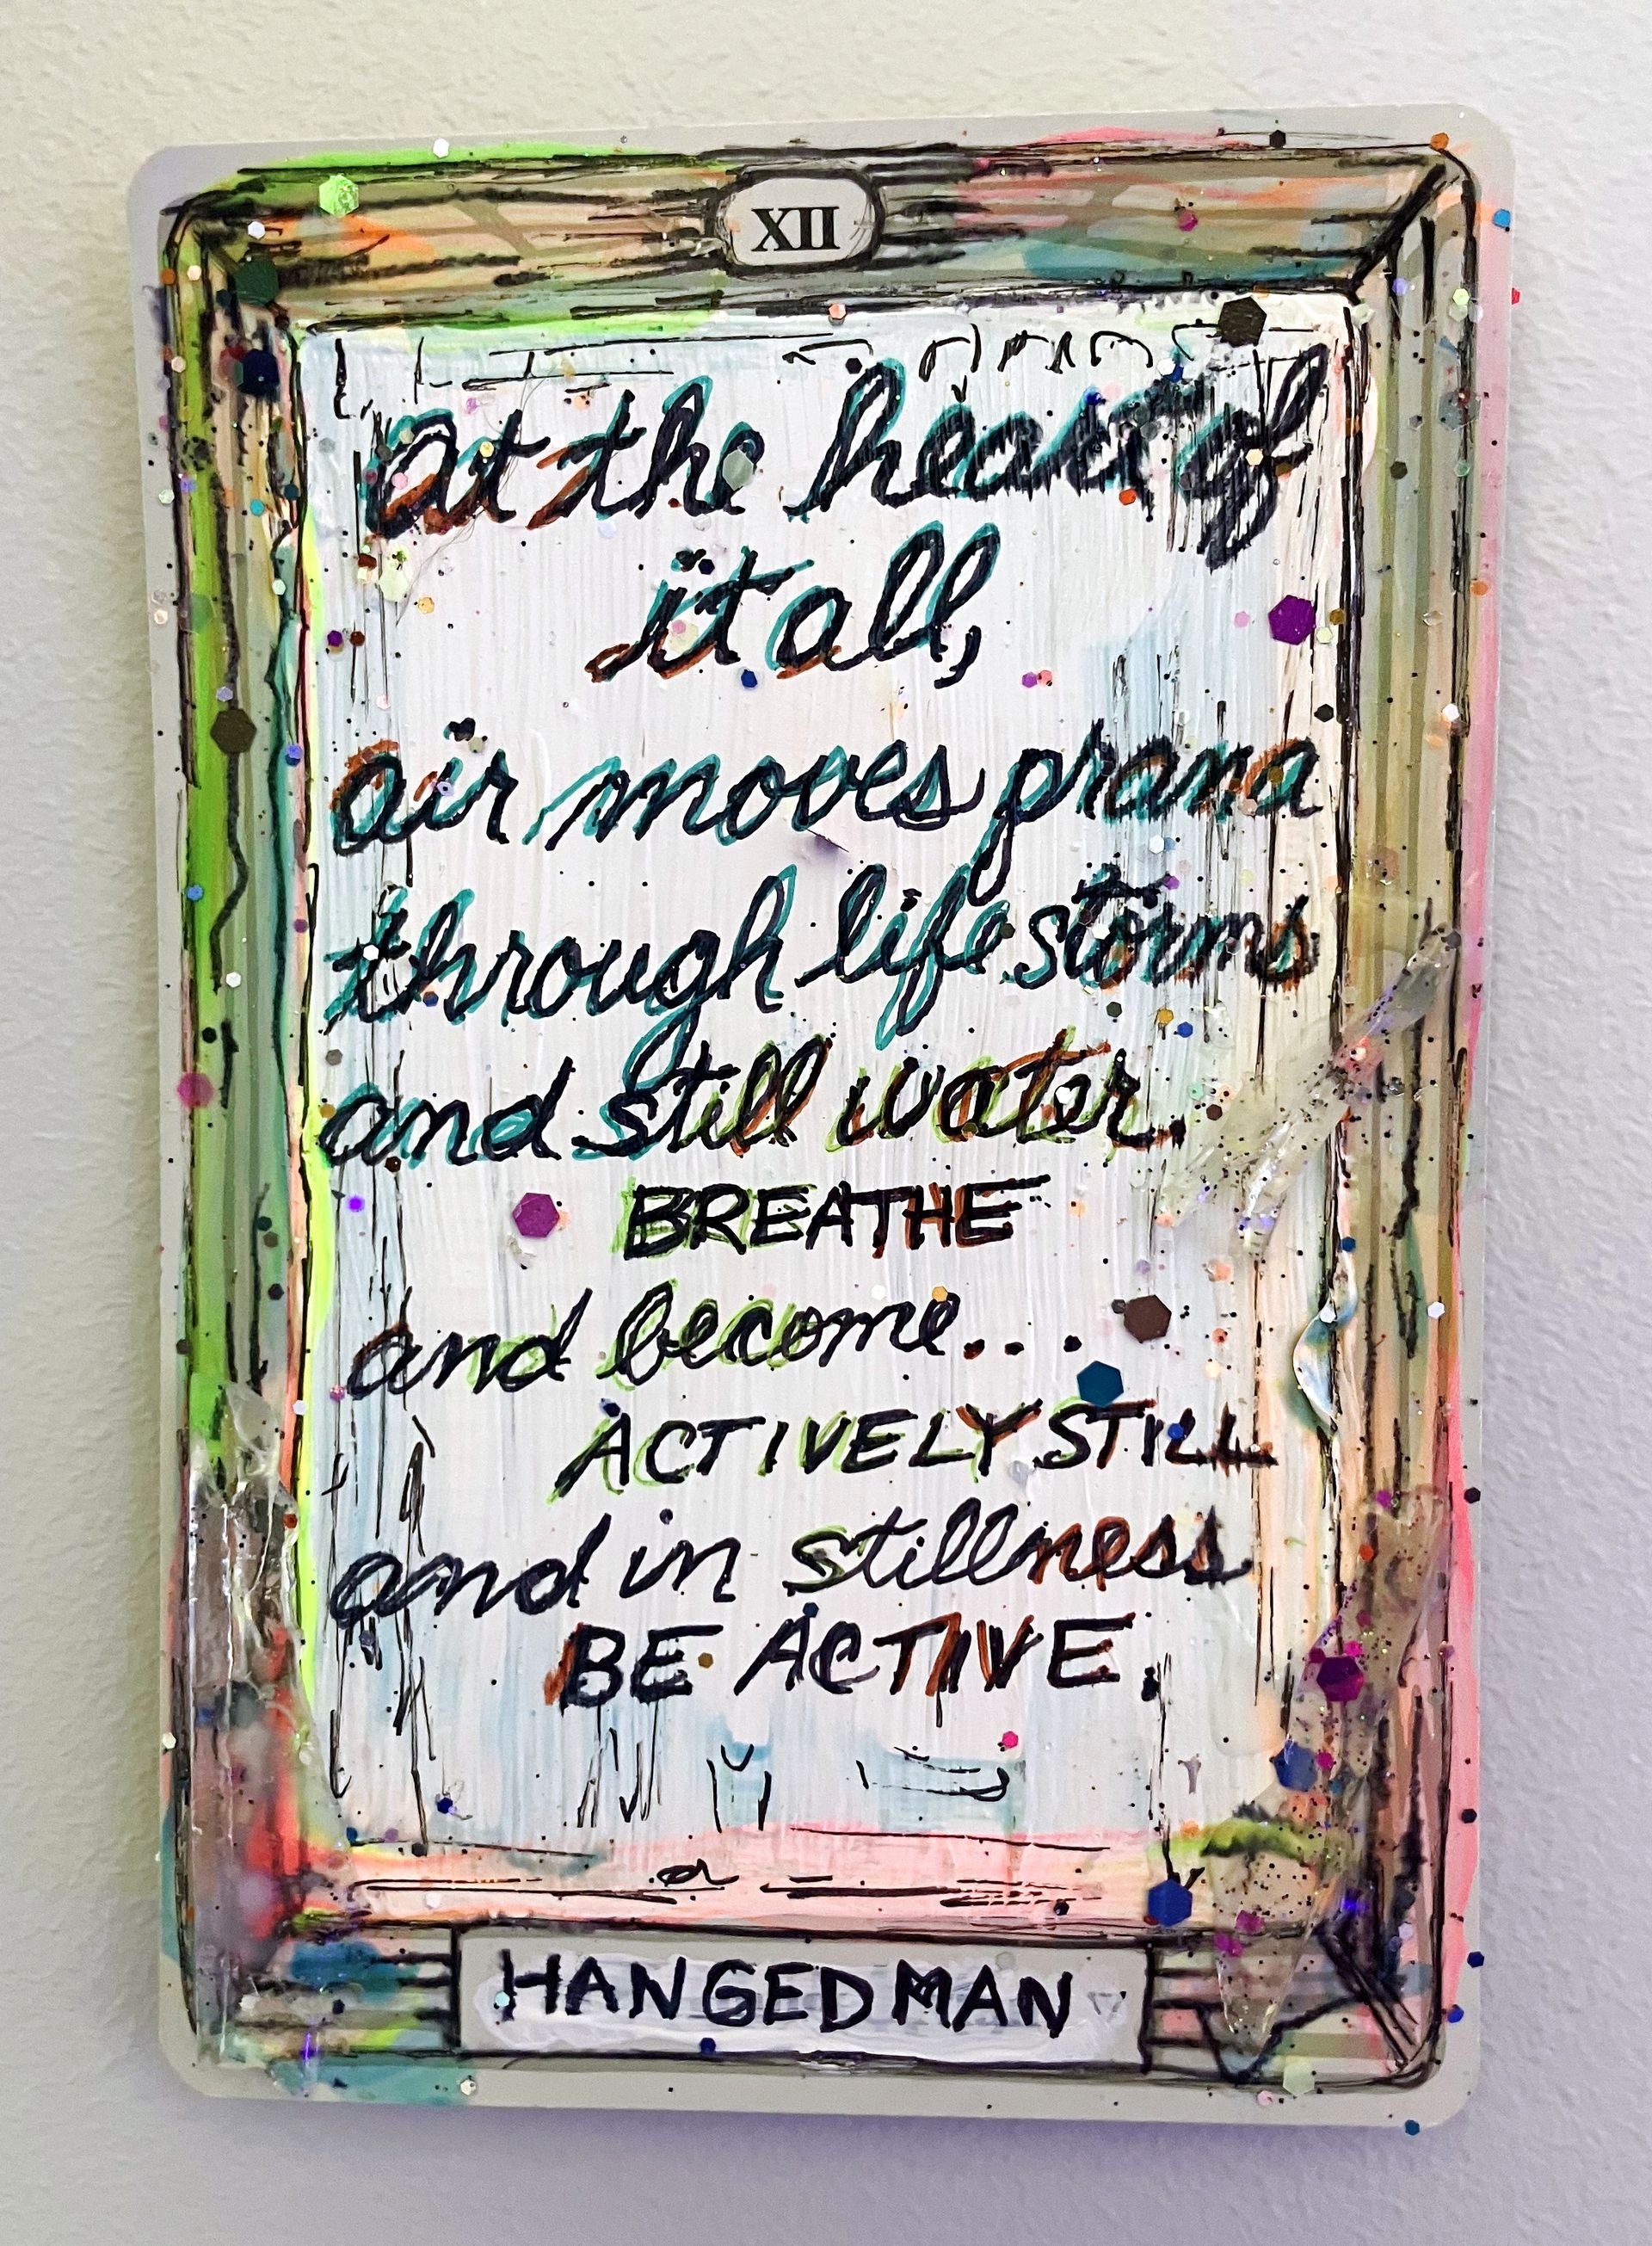 XII
at the heart of
it all,
air moves prana
through life storms
and still water.
BREATHE
and become...
ACTIVELY STILL
and in stillness
BE ACTIVE.
HANGED MAN